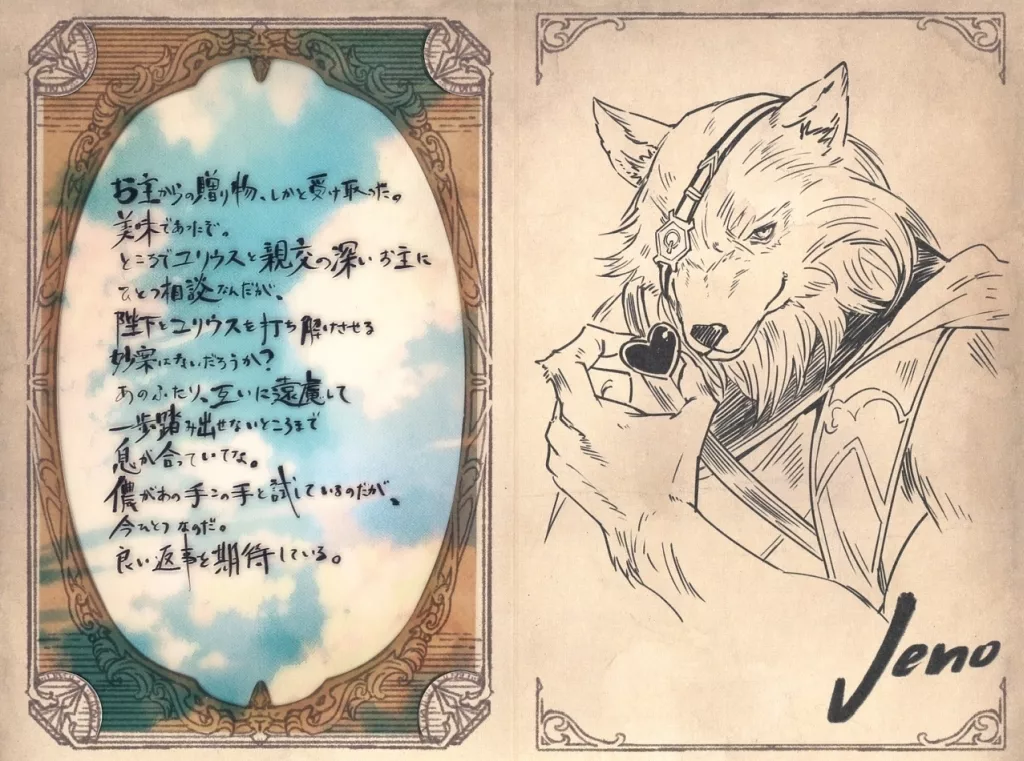 お主からの贈り物、しかと受け取った。
美味であったで。
ところでユリウスと親交の深いお主に
ひとつ相談なんだが、
陛下とユリウスを打ち解けさせる
妙案はないだろうか?
あのふたり、互いに遠慮して
一歩踏み出せないところまで
息が合っていてな。
儂があの手この手と試しているのだが、
今ひとつなのだ。
良い返事を期待している。
Jeno